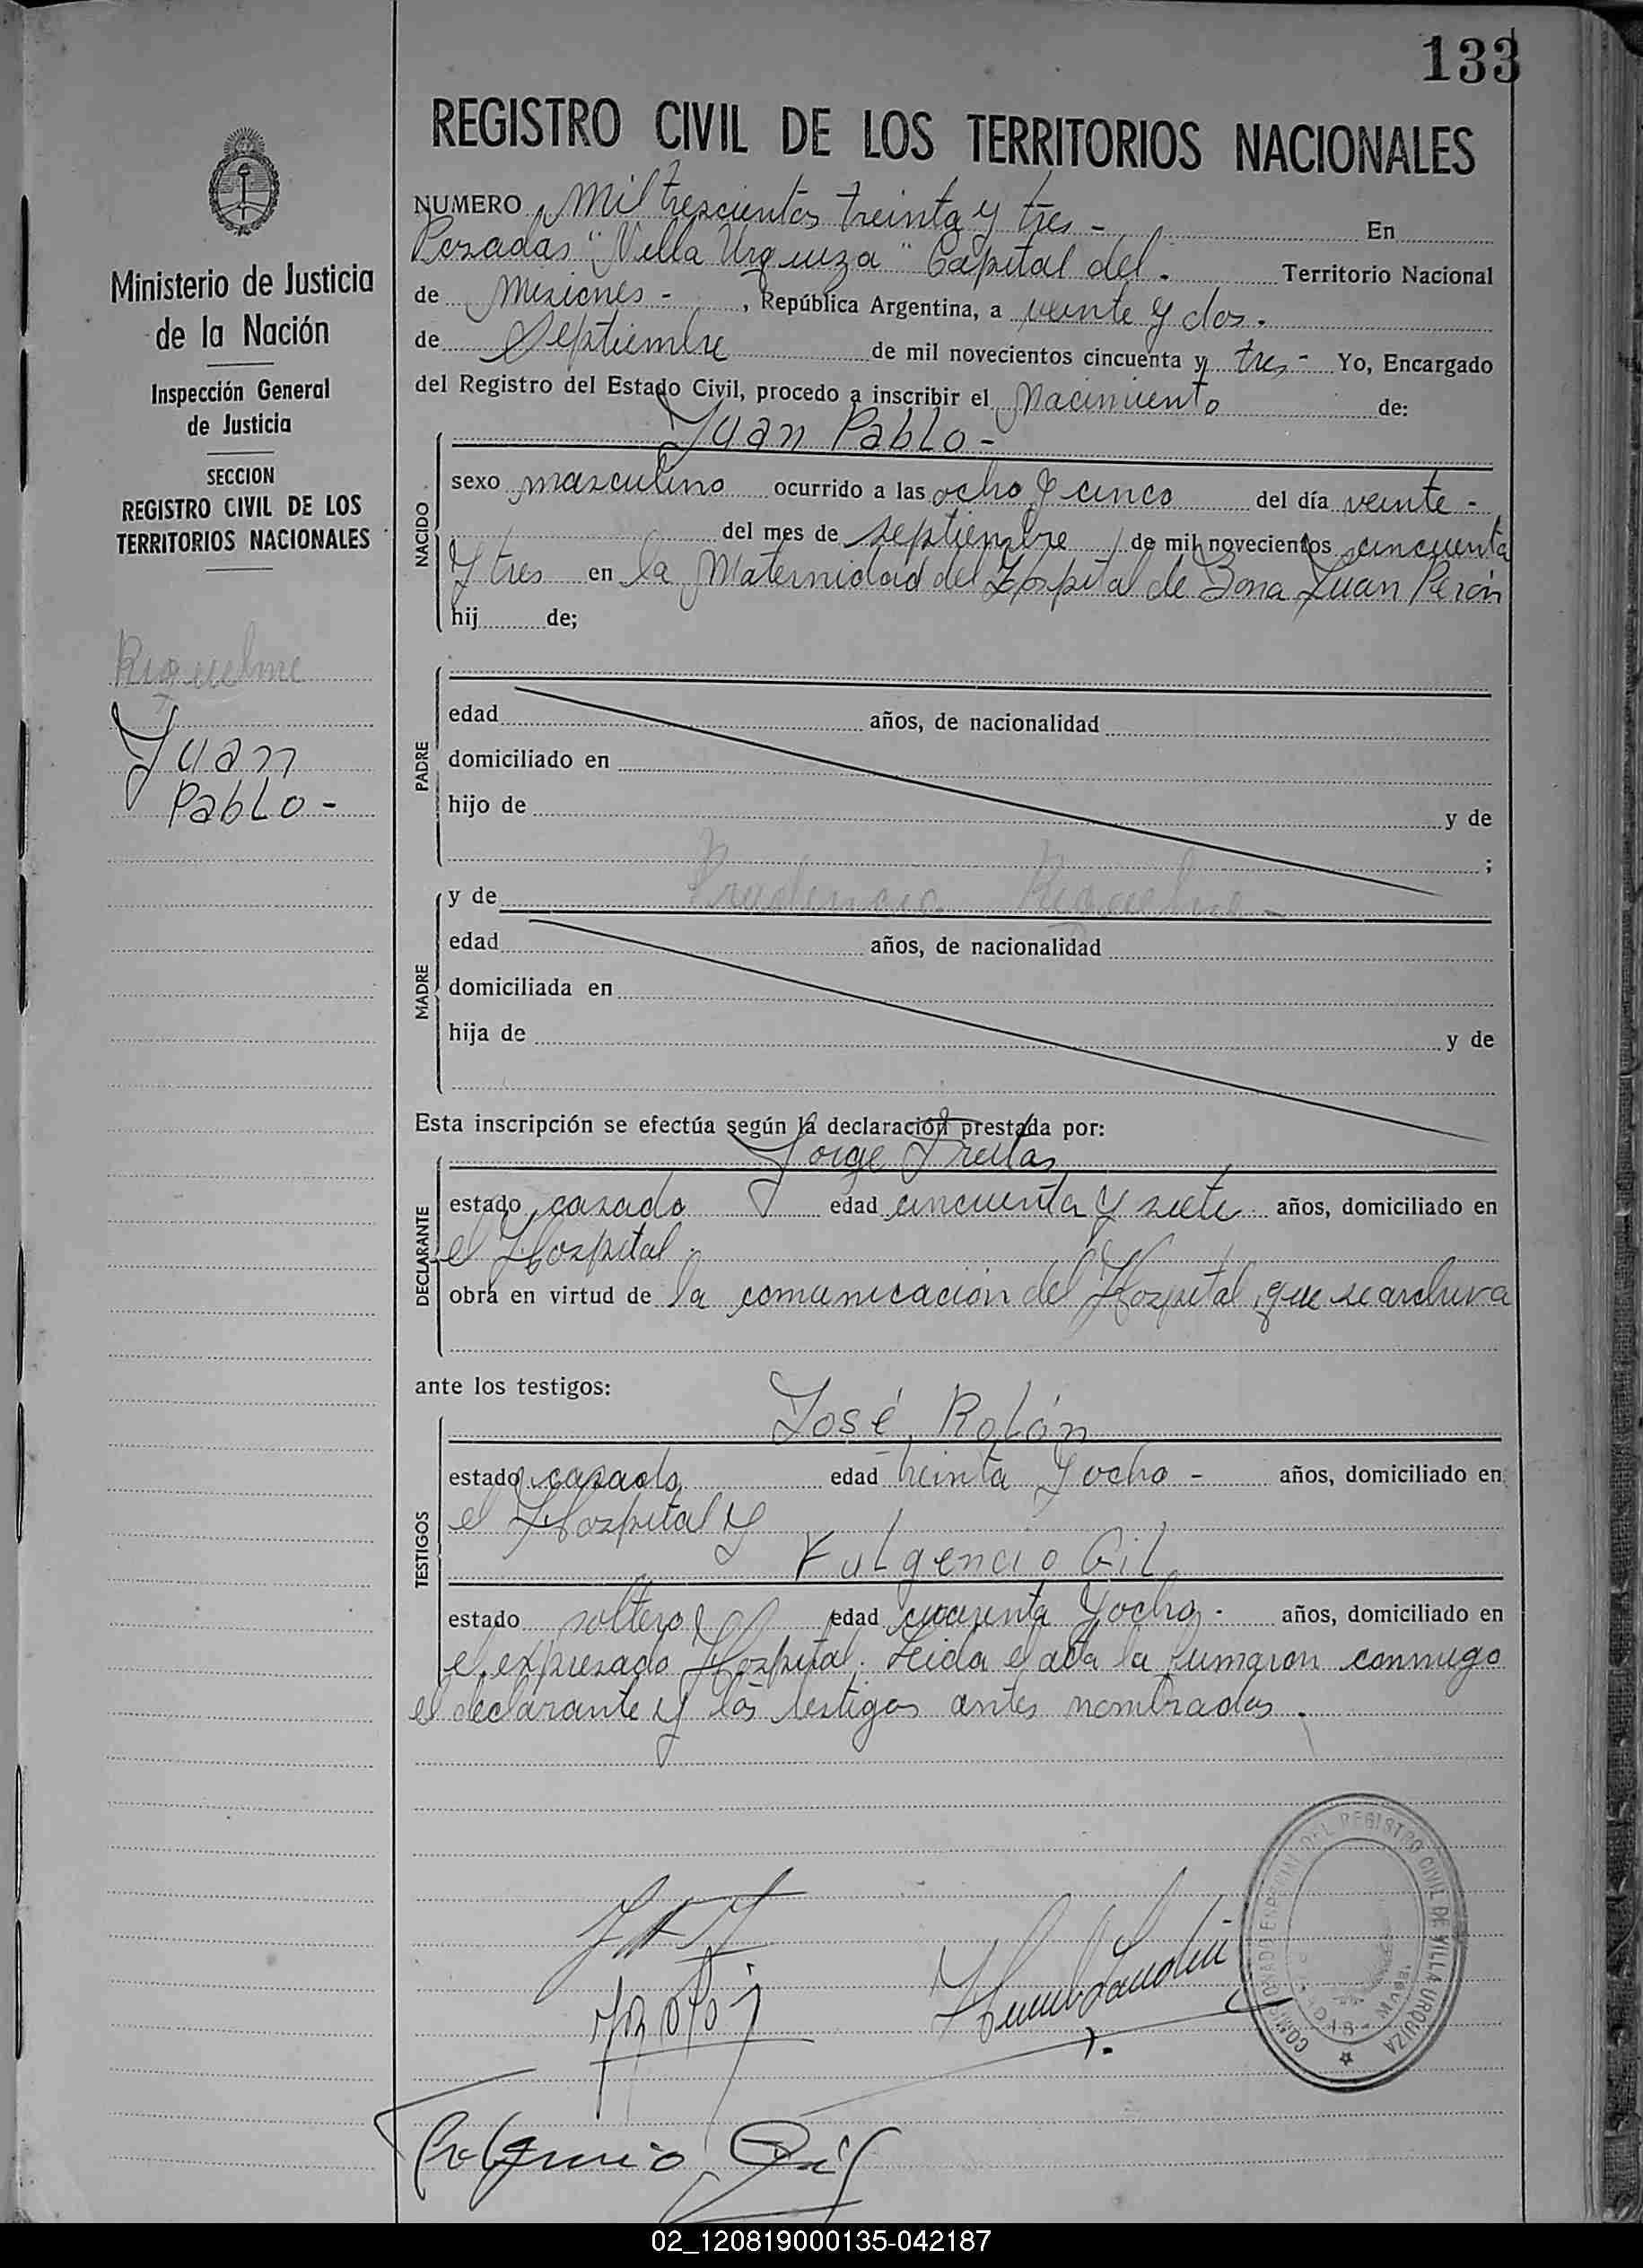 133
REGISTRO CIVIL DE LOS TERRITORIOS NACIONALES
Ministerio de Justicia
de la Nación
Inspección General
de Justicia
SECCION
REGISTRO CIVIL DE LOS
TERRITORIOS NACIONALES
Riquelme
Juan
Pablo -
NUMERO Mil trescientos treinta y tres - En
Posadas "Villa Urquiza" Capital del. Territorio Nacional
de Misiones - , República Argentina, a veinte y dos.
de Septiembre de mil novecientos cincuenta y tres - Yo, Encargado
del Registro del Estado Civil, procedo a inscribir el Nacimiento de:
Juan Pablo -
NACIDO
sexo masculino ocurrido a las ocho y cinco del día veinte -
del mes de septiembre de mil novecientos cincuenta
y tres en la Maternidad del Hospital de Zona Juan Perón
hij de;
PADRE
edad años, de nacionalidad
domiciliado en
hijo de y de
;
MADRE
y de Prudencia Riquelme -
edad años, de nacionalidad
domiciliada en
hija de y de
Esta inscripción se efectúa según la declaración prestada por:
Jorge Freitas
DECLARANTE
estado casado edad cincuenta y siete años, domiciliado en
el Hospital.
obra en virtud de la comunicación del Hospital, que se archiva
ante los testigos:
José Rolón
TESTIGOS
estado casado edad treinta y ocho - años, domiciliado en
el Hospital y
Fulgencio Gil
estado soltero edad cuarenta y ocho. años, domiciliado en
el expresado Hospital. Leida el acta la firmaron conmigo
el declarante y los testigos antes nombrados.
DEL REGISTRO CIVIL DE VILLA URQUIZA
Fulgencio Gil
02_120819000135-042187